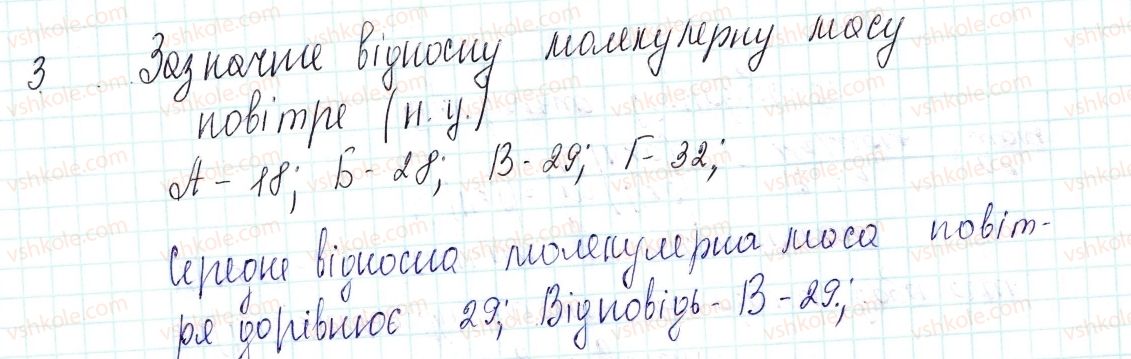 3. Зазначте відносну молекулярну масу
повітре (н. у.)
А - 18; Б - 28; В - 29; Г - 32;
Середнє відносна молекулярна маса повіт-
ря дорівнює 29; Відповідь - В - 29.;